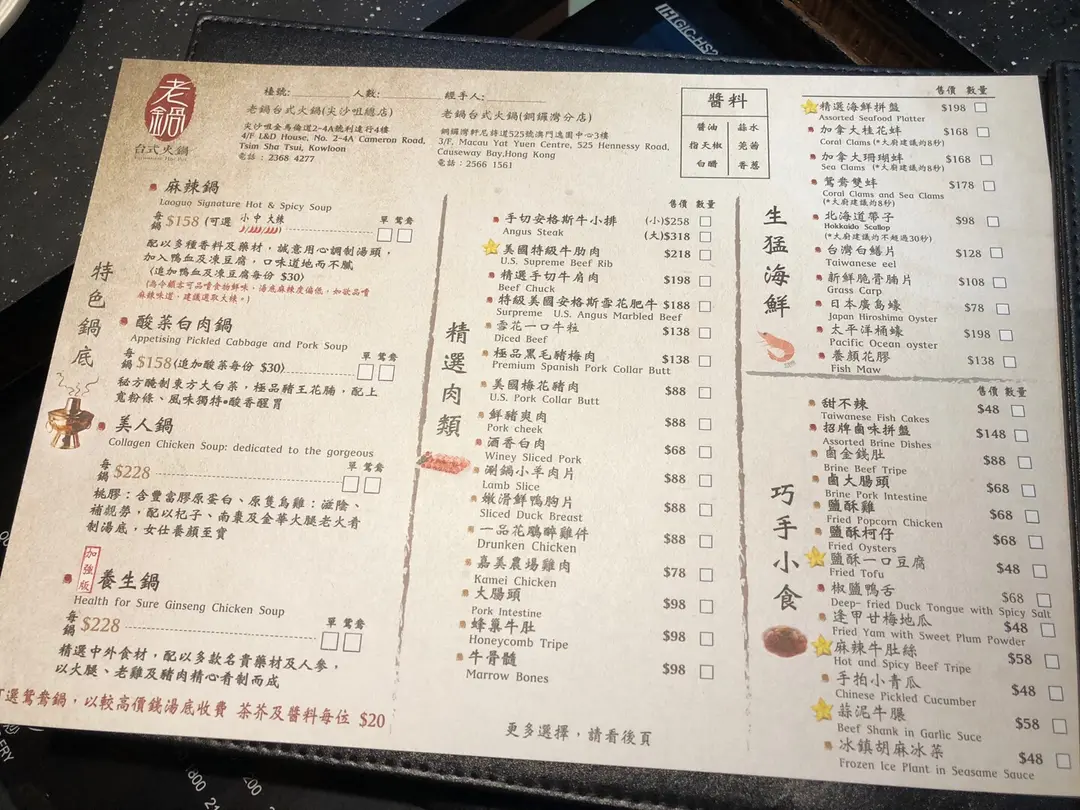 老鍋
台式火鍋
檯號: 人數: 經手人:
老鍋台式火鍋(尖沙咀總店)
尖沙咀金馬倫道2-4A號利達行4樓
4/F L&D House, No. 2-4A Cameron Road,
Tsim Sha Tsui, Kowloon
電話 : 2368 4277
老鍋台式火鍋(銅鑼灣分店)
銅鑼灣軒尼詩道525號澳門逸園中心3樓
3/F, Macau Yat Yuen Centre, 525 Hennessy Road,
Causeway Bay,Hong Kong
電話 : 2566 1561
醬料
醬油 蒜水
指天椒 芫茜
白醋 香蔥
特色鍋底
麻辣鍋
Laoguo Signature Hot & Spicy Soup
每鍋 $158 (可選 小 中 大辣) 單 鴛鴦
配以多種香料及藥材，誠意用心調制湯頭，
加入鴨血及凍豆腐，口味道地而不膩
(追加鴨血及凍豆腐每份 $30)
麻辣味道，建議選取大辣。)
酸菜白肉鍋
Appetising Pickled Cabbage and Pork Soup
每鍋 $158(追加酸菜每份 $30) 單 鴛鴦
秘方醃制東方大白菜，極品豬王花腩，配上
寬粉條、風味獨特•酸香醒胃
美人鍋
Collagen Chicken Soup: dedicated to the gorgeous
每鍋 $228 單 鴛鴦
桃膠：含豐富膠原蛋白、原隻烏雞：滋陰、
補靚勞，配以杞子、南棗及金華大腿老火肴
制湯底，女仕養顏至寶
加強版
養生鍋
Health for Sure Ginseng Chicken Soup
每鍋 $228 單 鴛鴦
精選中外食材，配以多款名貴藥材及人參，
以大腿、老雞及豬肉精心肴制而成
選鴛鴦鍋，以較高價錢湯底收費 茶芥及醬料每位 $20
精選肉類
售價 數量
手切安格斯牛小排 (小)$258
Angus Steak (大)$318
美國特級牛肋肉 $218
U.S. Supreme Beef Rib
精選手切牛肩肉 $198
Beef Chuck
特級美國安格斯雪花肥牛 $188
Surpreme U.S. Angus Marbled Beef
雪花一口牛粒 $138
Diced Beef
極品黑毛豬梅肉 $138
Premium Spanish Pork Collar Butt
美國梅花豬肉 $88
U.S. Pork Collar Butt
鮮豬爽肉 $88
Pork cheek
酒香白肉 $68
Winey Sliced Pork
涮鍋小羊肉片 $88
Lamb Slice
嫩滑鮮鴨胸片 $88
Sliced Duck Breast
一品花鵰醉雞件 $88
Drunken Chicken
嘉美農場雞肉 $78
Kamei Chicken
大腸頭 $98
Pork Intestine
蜂巢牛肚 $98
Honeycomb Tripe
牛骨髓 $98
Marrow Bones
更多選擇，請看後頁
生猛海鮮
售價 數量
精選海鮮拼盤 $198
Assorted Seafood Platter
加拿大桂花蚌 $168
Coral Clams (*大廚建議約8秒)
加拿大珊瑚蚌 $168
Sea Clams (*大廚建議約8秒)
鴛鴦雙蚌 $178
Coral Clams and Sea Clams
(*大廚建議約8秒)
北海道帶子 $98
Hokkaido Scallop
(*大廚建議灼不超過30秒)
台灣白鱔片 $128
Taiwanese eel
新鮮脆骨腩片 $108
Grass Carp
日本廣島蠔 $78
Japan Hiroshima Oyster
太平洋桶蠔 $198
Pacific Ocean oyster
養顏花膠 $138
Fish Maw
巧手小食
售價 數量
甜不辣 $48
Taiwanese Fish Cakes
招牌鹵味拼盤 $148
Assorted Brine Dishes
鹵金錢肚 $88
Brine Beef Tripe
鹵大腸頭 $68
Brine Pork Intestine
鹽酥雞 $68
Fried Popcorn Chicken
鹽酥柯仔 $68
Fried Oysters
鹽酥一口豆腐 $48
Fried Tofu
椒鹽鴨舌 $68
Deep- fried Duck Tongue with Spicy Salt
逢甲甘梅地瓜 $48
Fried Yam with Sweet Plum Powder
麻辣牛肚絲 $58
Hot and Spicy Beef Tripe
手拍小青瓜 $48
Chinese Pickled Cucumber
蒜泥牛𦟌 $58
Beef Shank in Garlic Suce
冰鎮胡麻冰菜 $48
Frozen Ice Plant in Seasame Sauce